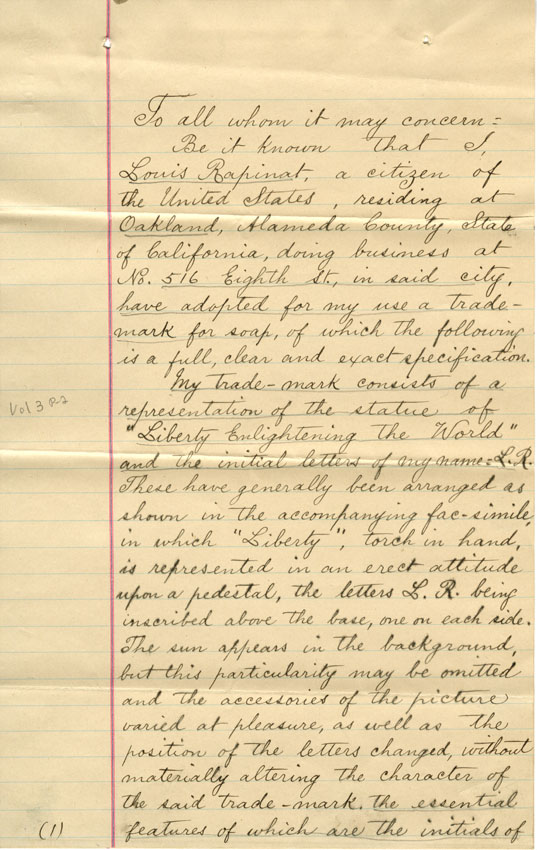 To all whom it may concern =
Be it known that I,
Louis Rapinat, a citizen of
the United States, residing at
Oakland, Alameda County, State
of California, doing business at
No. 516 Eighth St., in said city,
have adopted for my use a trade-
mark for soap, of which the following
is a full, clear and exact specification.
My trade-mark consists of a
representation of the statue of
"Liberty Enlightening the World"
and the initial letters of my name = L. R.
These have generally been arranged as
shown in the accompanying fac-simile,
in which "Liberty", torch in hand,
is represented in an erect attitude
upon a pedestal, the letters L. R. being
inscribed above the base, one on each side.
The sun appears in the background,
but this particularity may be omitted
and the accessories of the picture
varied at pleasure, as well as the
position of the letters changed, without
materially altering the character of
the said trade-mark. the essential
features of which are the initials of
Vol 3 P-2
(1)